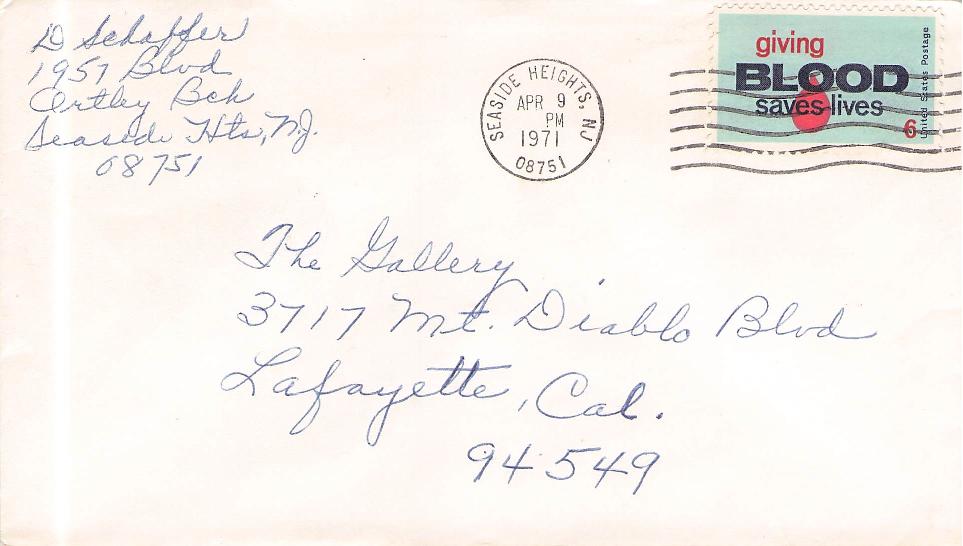 D Schaffer
1957 Blvd
Ortley Bch
Seaside Hts, N.J.
08751
SEASIDE HEIGHTS, NJ
APR 9
PM
1971
08751
giving
BLOOD
saves lives
6c
United States Postage
The Gallery
3717 Mt. Diablo Blvd
Lafayette, Cal.
94549